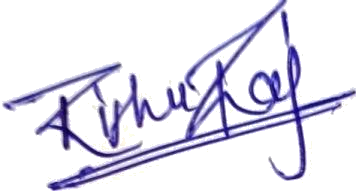 Rishu Raj